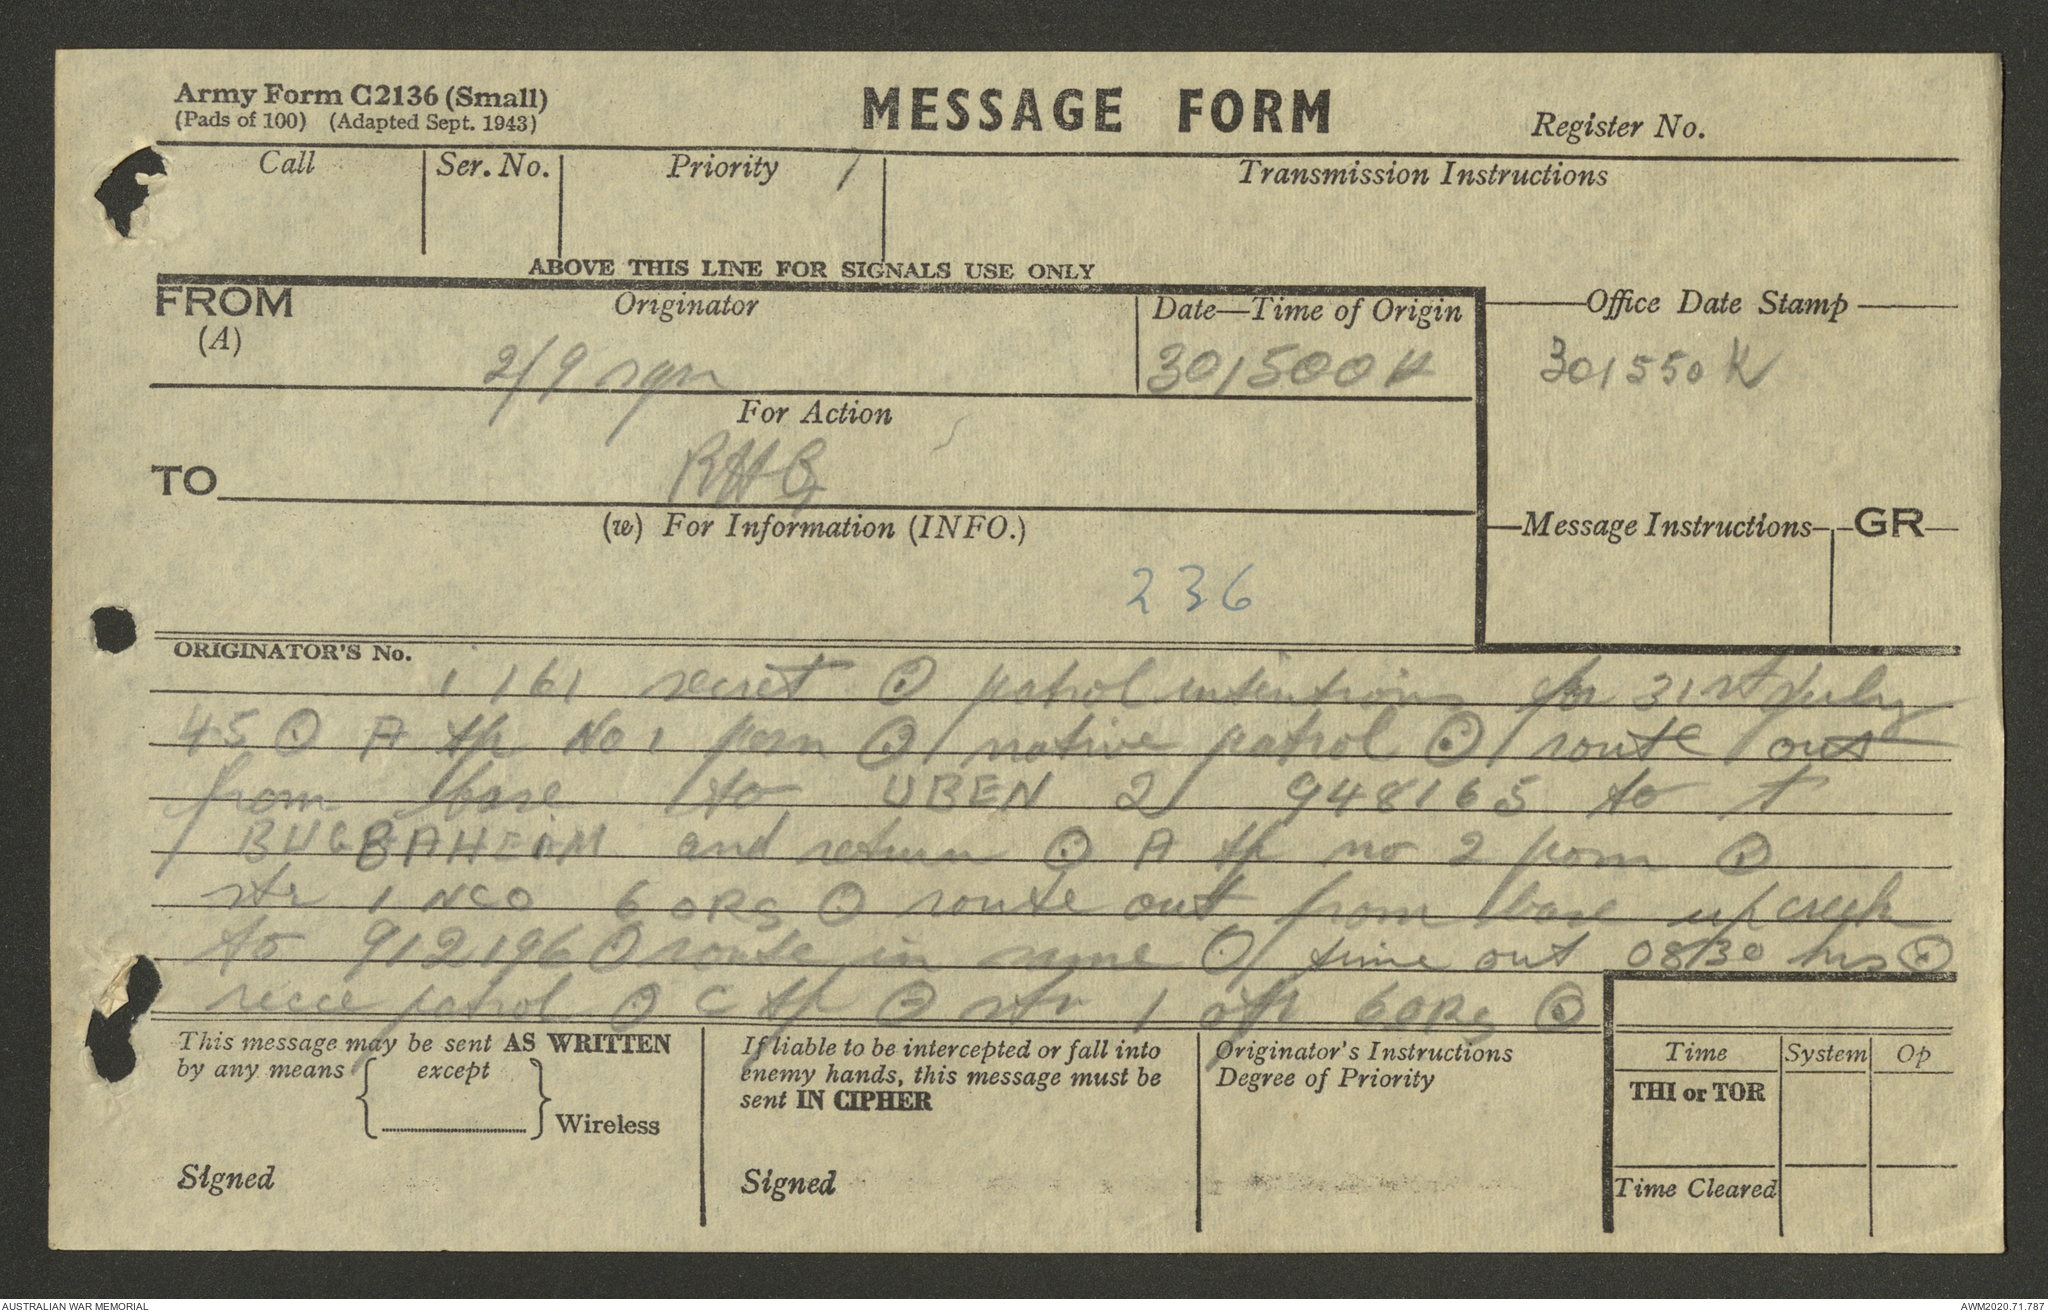 Army Form C2136 (Small)
(Pads of 100) (Adapted Sept. 1943)
MESSAGE FORM
Register No.
Call
Ser. No.
Priority /
Transmission Instructions
ABOVE THIS LINE FOR SIGNALS USE ONLY
FROM
(A)
Originator
2/9 sqn
Date—Time of Origin
301500 K
Office Date Stamp
301550 K
For Action
RHQ
TO
(w) For Information (INFO.)
236
Message Instructions
GR
ORIGINATOR'S No.
i 161 secret ⊙ patrol intentions for 31st July
45 ⊙ A tp No 1 pern ⊙ native patrol ⊙ route out
from base to UBEN 2 948165 to
and return ⊙ A tp no 2 pern ⊙
str 1 NCO 6 ORS ⊙ route out from base up creek
to 912196 ⊙ route in same ⊙ time out 0830 hrs ⊙
recce patrol ⊙ C tp ⊙ str 1 ofr 6 ORs ⊙
This message may be sent AS WRITTEN
by any means { except } Wireless
Signed
If liable to be intercepted or fall into
enemy hands, this message must be
sent IN CIPHER
Signed
Originator's Instructions
Degree of Priority
Time
System
Op
THI or TOR
Time Cleared
AUSTRALIAN WAR MEMORIAL
AWM2020.71.787